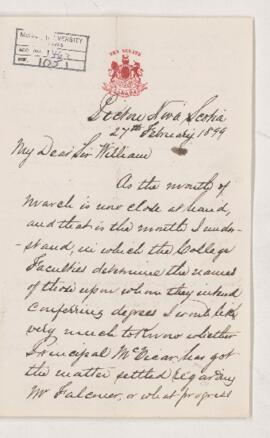 McGILL UNIVERSITY
ACC. NO. 1463
REF. 1051
THE SENATE
CANADA
Pictou Nova Scotia
27th February 1899
My Dear Sir William
As the month of
March is now close at hand,
and that is the month I under-
stand, in which the College
Faculties determine the names
of those upon whom they intend
conferring degrees I would like
very much to know whether
Principal McVicar, has got
the matter settled regarding
Mr Falconer, or what progress